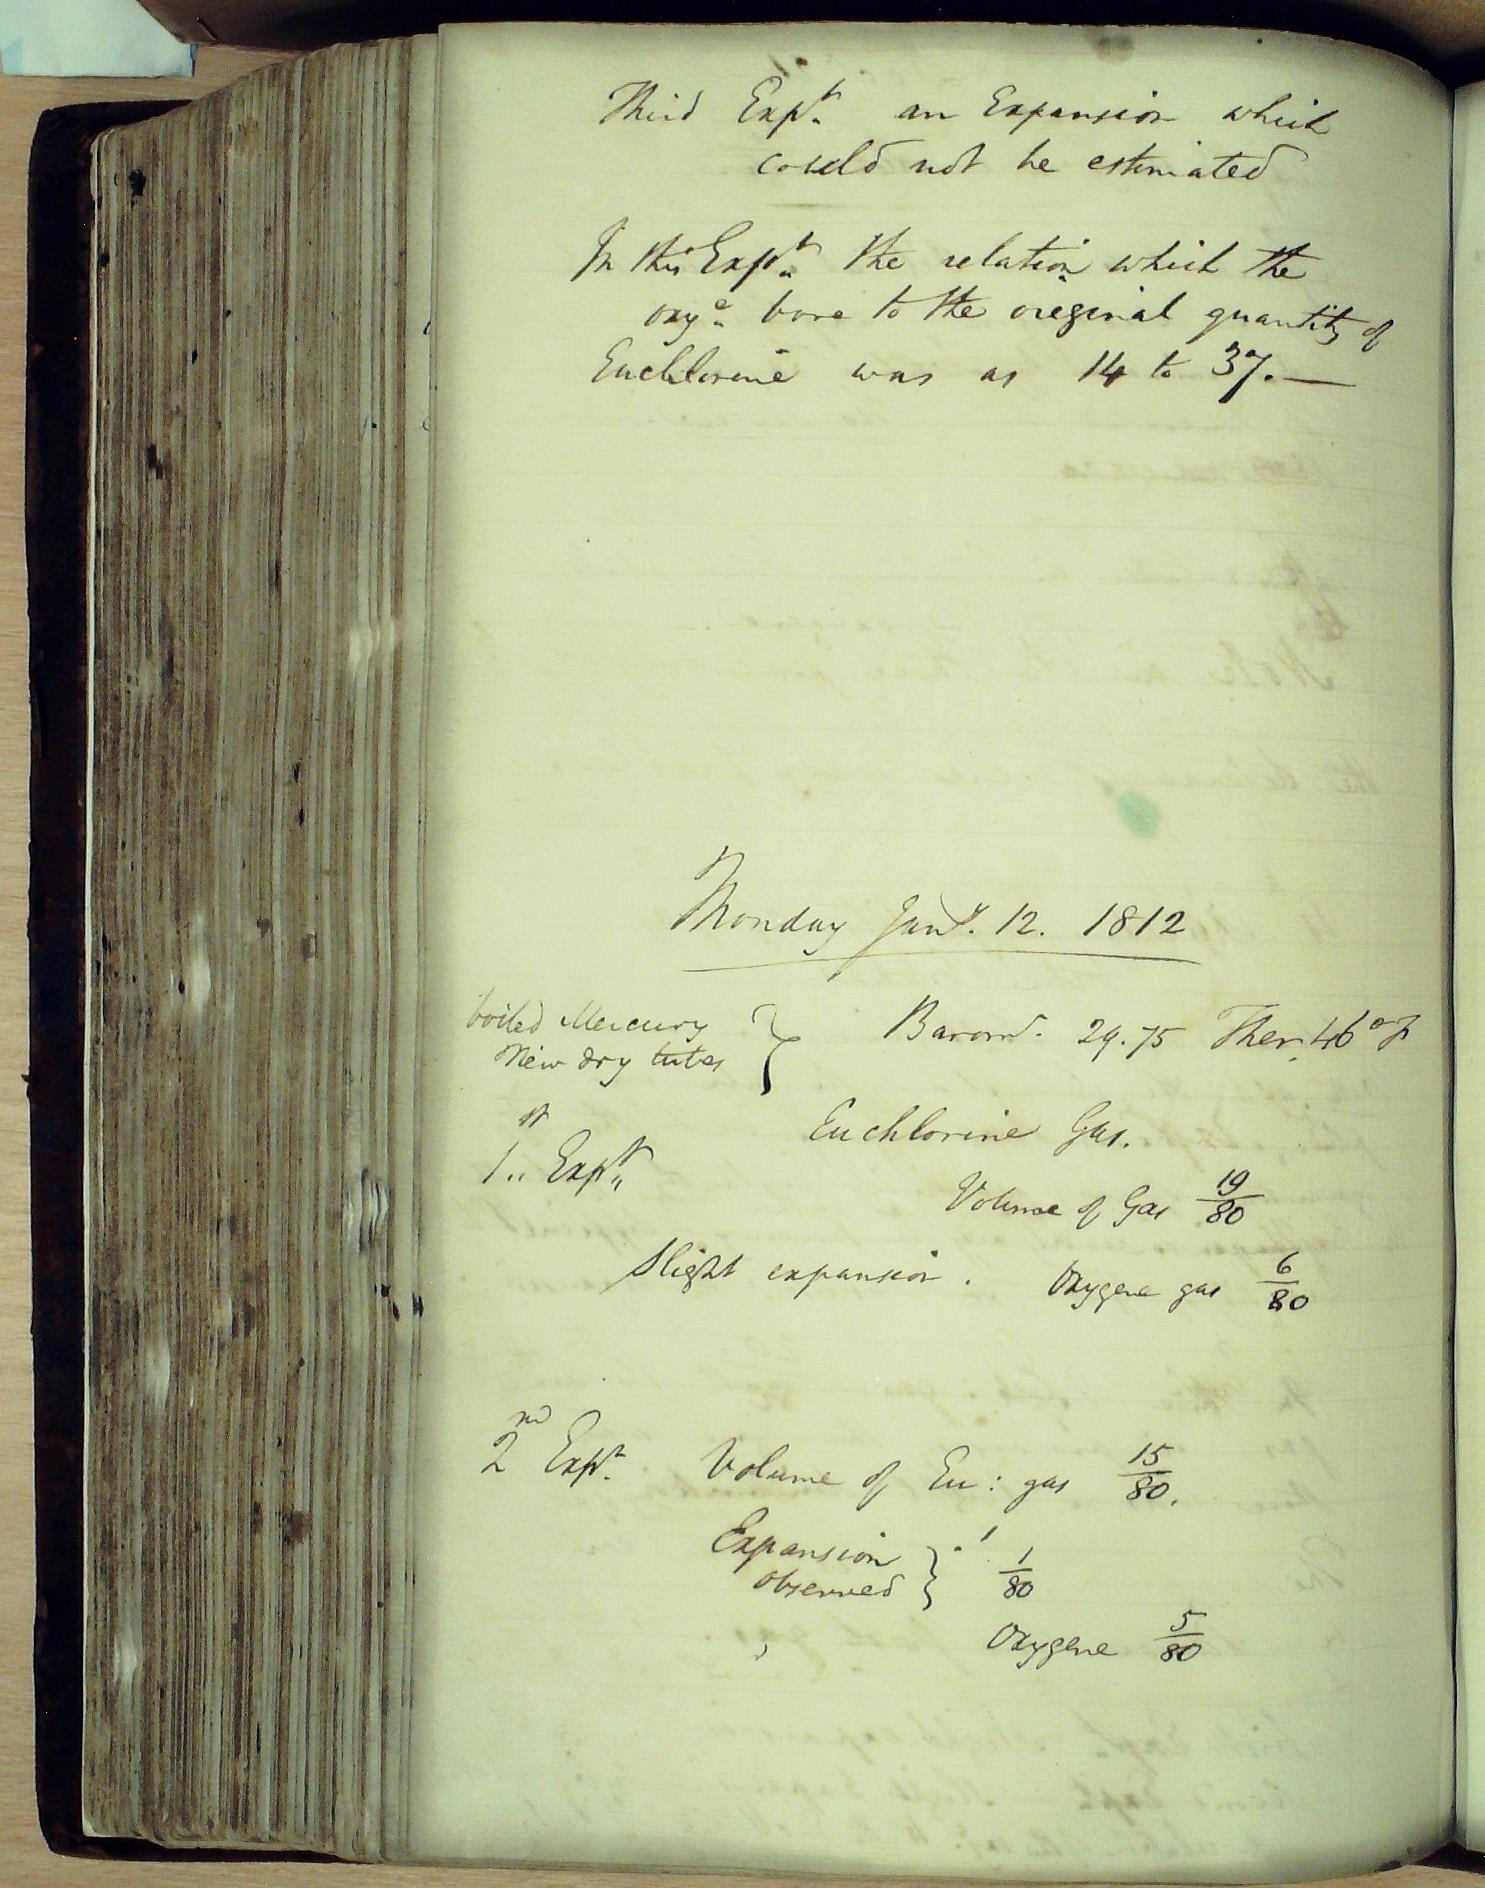 Third Expt. an Expansion which
could not be estimated
In this Expt. the relation which the
oxye. bore to the original quantity of
Euchlorine was as 14 to 37. —
Monday Jany. 12. 1812
boiled Mercury
New dry tubes } Baromr. 29.75 Ther. 46° F
Euchlorine Gas.
1st Expt.
Volume of Gas 19/80
Slight expansion. Oxygene gas 6/80
2nd Expt. Volume of Eu: gas 15/80.
Expansion
observed } 1/80
Oxygene 5/80